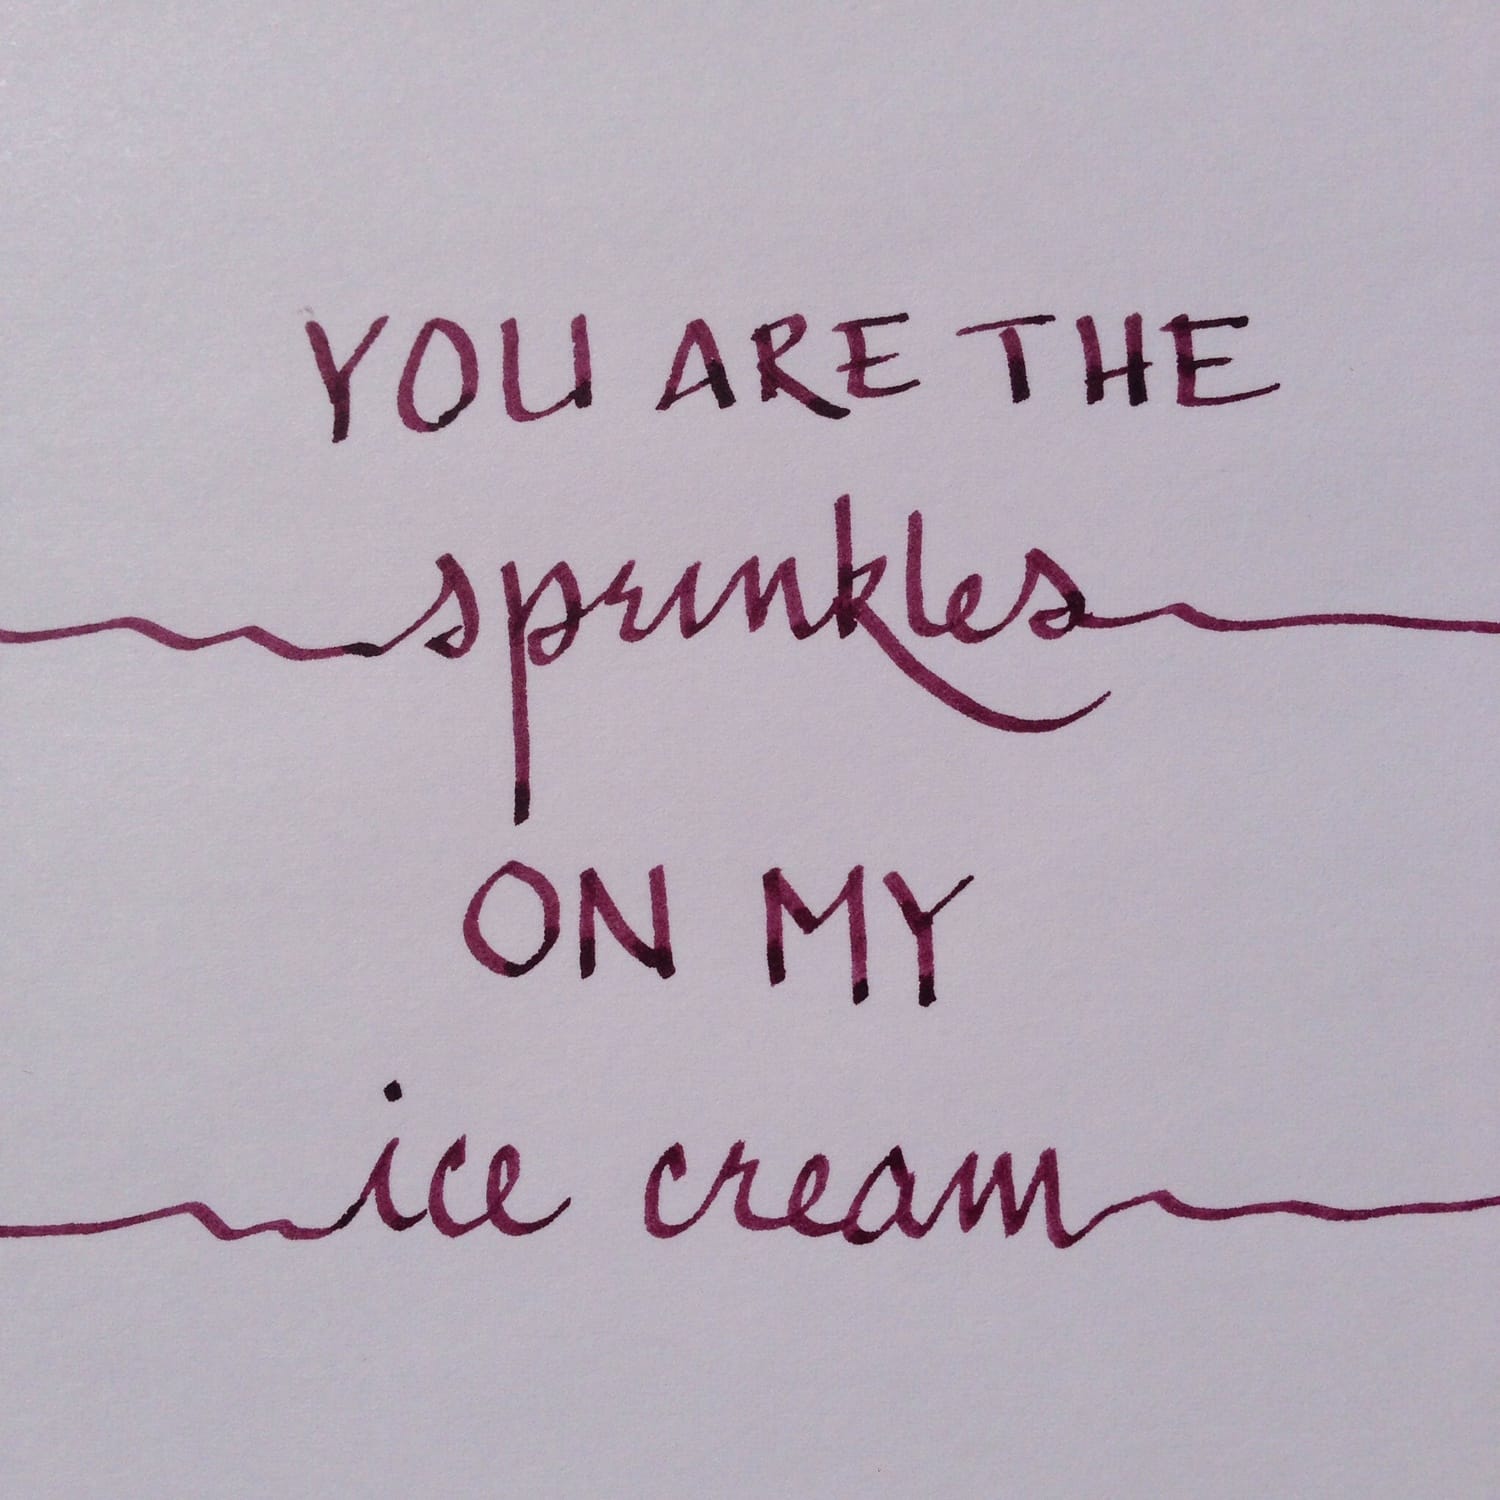 YOU ARE THE
sprinkles
ON MY
ice cream